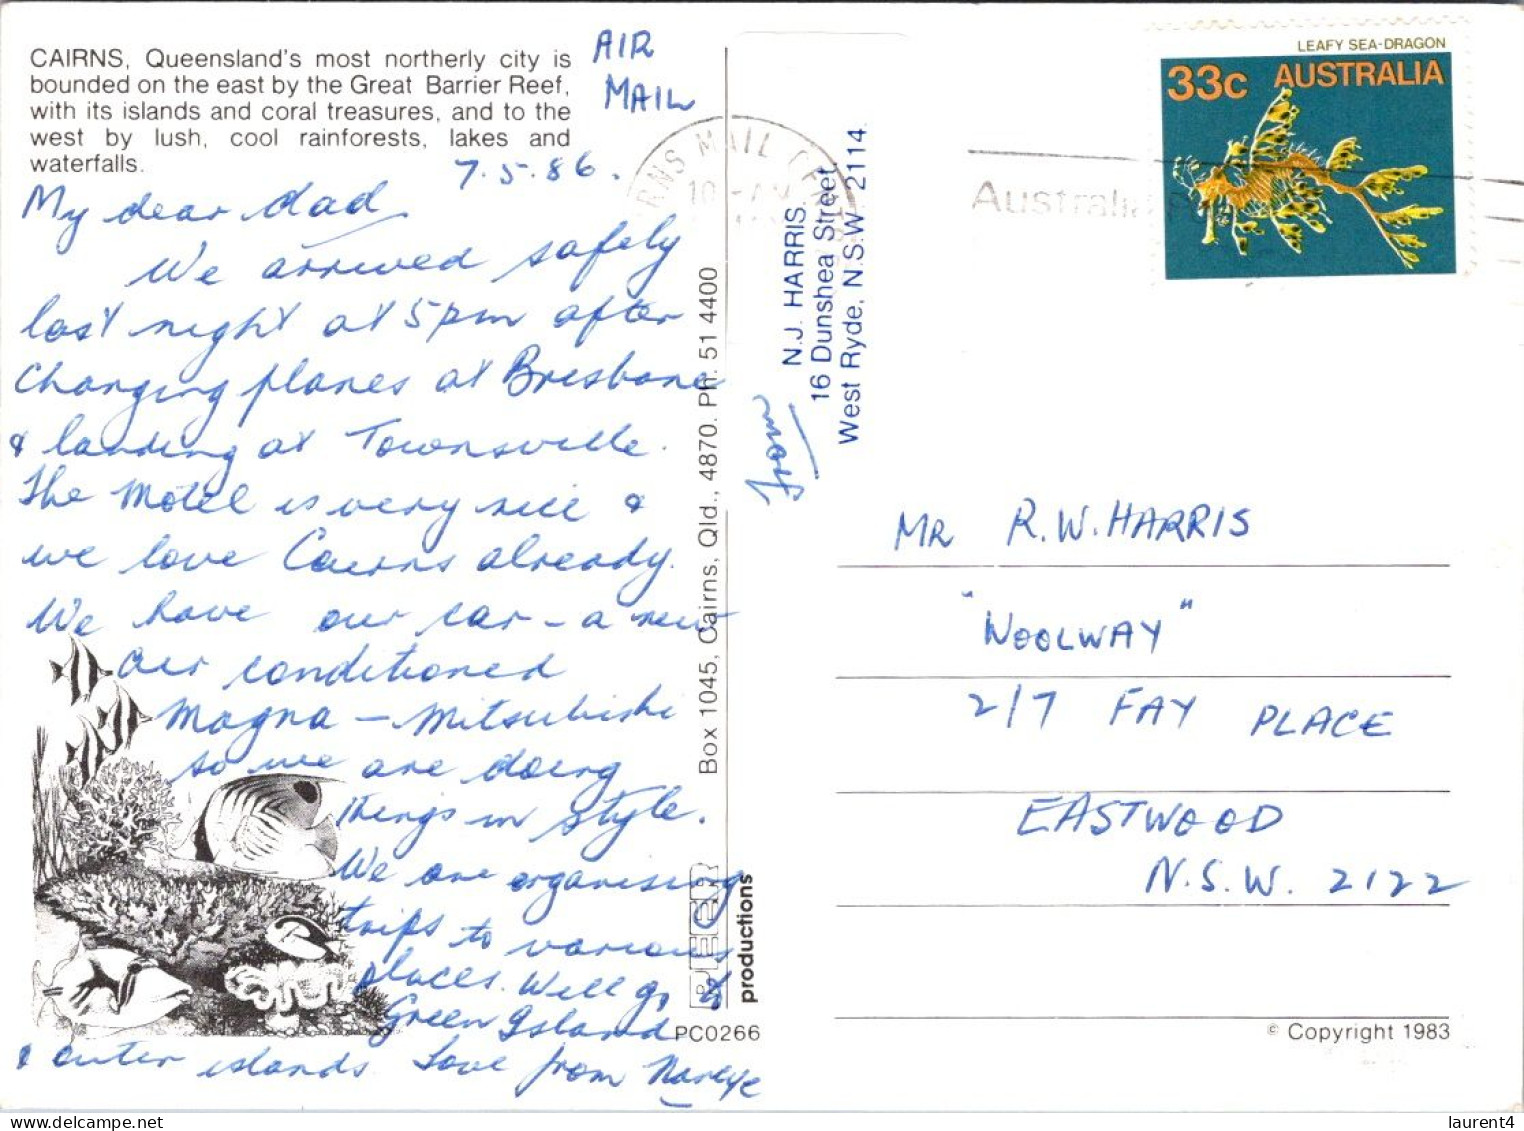 CAIRNS, Queensland's most northerly city is
bounded on the east by the Great Barrier Reef,
with its islands and coral treasures, and to the
west by lush, cool rainforests, lakes and
waterfalls.
AIR
MAIL
7.5.86.
My dear dad
We arrived safely
last night at 5pm after
changing planes at Brisbane
& landing at Townsville.
The Motel is very nice &
we love Cairns already.
We have our car – a new
air conditioned
Magna – Mitsubishi
so we are doing
things in style.
We are organising
trips to various
places. Will go to
Green Island
& outer islands. Love from
Box 1045, Cairns, Qld., 4870. Ph. 51 4400
REEF
productions
PC0266
RNS MAIL CE
10
Australia
LEAFY SEA-DRAGON
33c AUSTRALIA
From
N.J. HARRIS.
16 Dunshea Street
West Ryde, N.S.W. 2114.
MR R.W. HARRIS
"WOOLWAY"
2/7 FAY PLACE
EASTWOOD
N.S.W. 2122
© Copyright 1983
laurent4